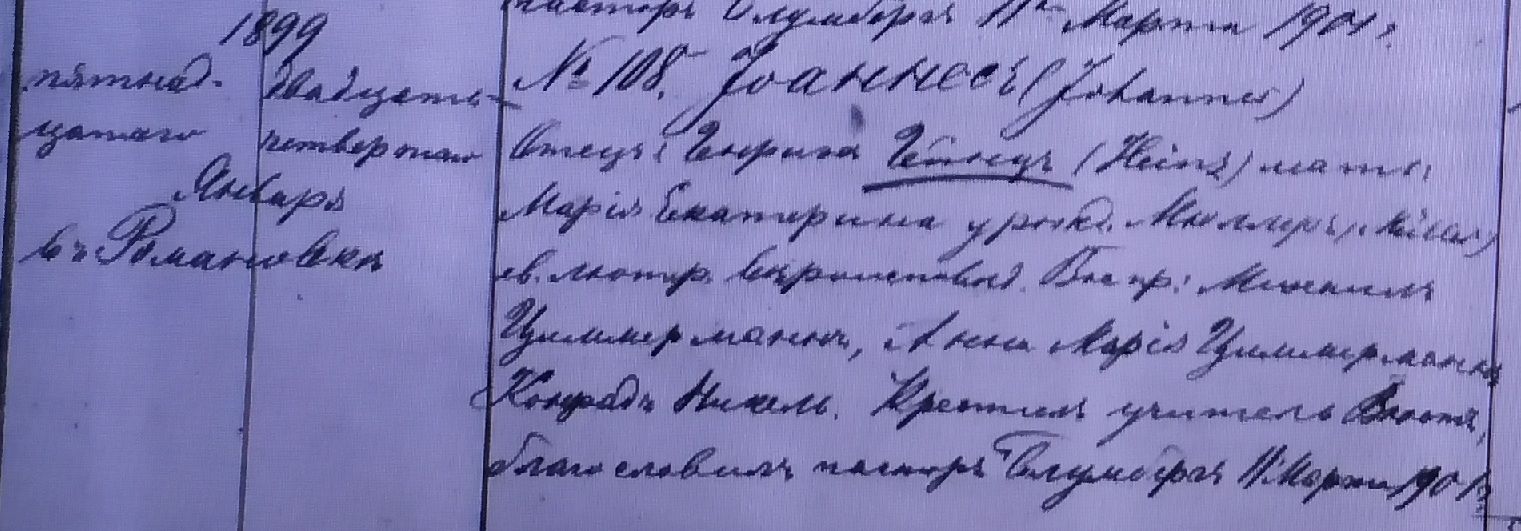 пасторъ Блумбергъ 11го Марта 1901 г.
1899
пятнад- двадцать
цатаго четвертаго
Январь
въ Романовка
№ 108. Іоаннесъ (Johannes)
Отецъ: Генрихъ Гейнцъ (Heinz) мать:
Марія Екатерина урожд. Мюллеръ (Müller)
ев. лютер. вѣроисповѣд. Воспр: Михаилъ
Циммерманнъ, Анна Марія Циммерманнъ
Конрадъ Никель. Крестилъ учитель
благословилъ пасторъ Блумбергъ 11 Марта 1901 г.